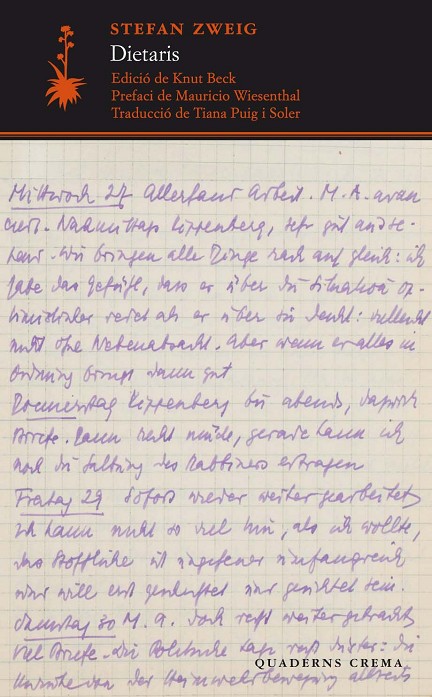 STEFAN ZWEIG
Dietaris
Edició de Knut Beck
Prefaci de Mauricio Wiesenthal
Traducció de Tiana Puig i Soler
Mittwoch 27 Allerhand Arbeit. M. A. avan
ciert. Nachmittags Kippenberg, sehr gut
Wir bringen alle Dinge rasch auf gleich: ich
habe das Gefühl, dass er über die Situation op-
timistischer redet als er über sie denkt: vielleicht
nicht ohne Nebenabsicht. Aber wenn er alles in
Ordnung bringt dann gut
Donnerstag Kippenberg bis abends, dazwischen
Briefe. Dann recht müde, gerade kann ich
noch die des Rabbiners ertragen
Freitag 29 Sofort wieder weiter gearbeitet
Ich kann nicht so viel tun, als ich wollte,
das Stoffliche ist ungeheuer umfangreich
und will erst und gesichtet sein.
Samstag 30 M. A. doch recht weiter gebracht
Viel Briefe. Die Politische Lage recht düster: die
von der Heimwehrbewegung
QUADERNS CREMA